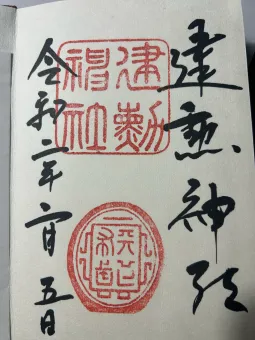 建勲神社
建勲
神社
令和二年一月五日